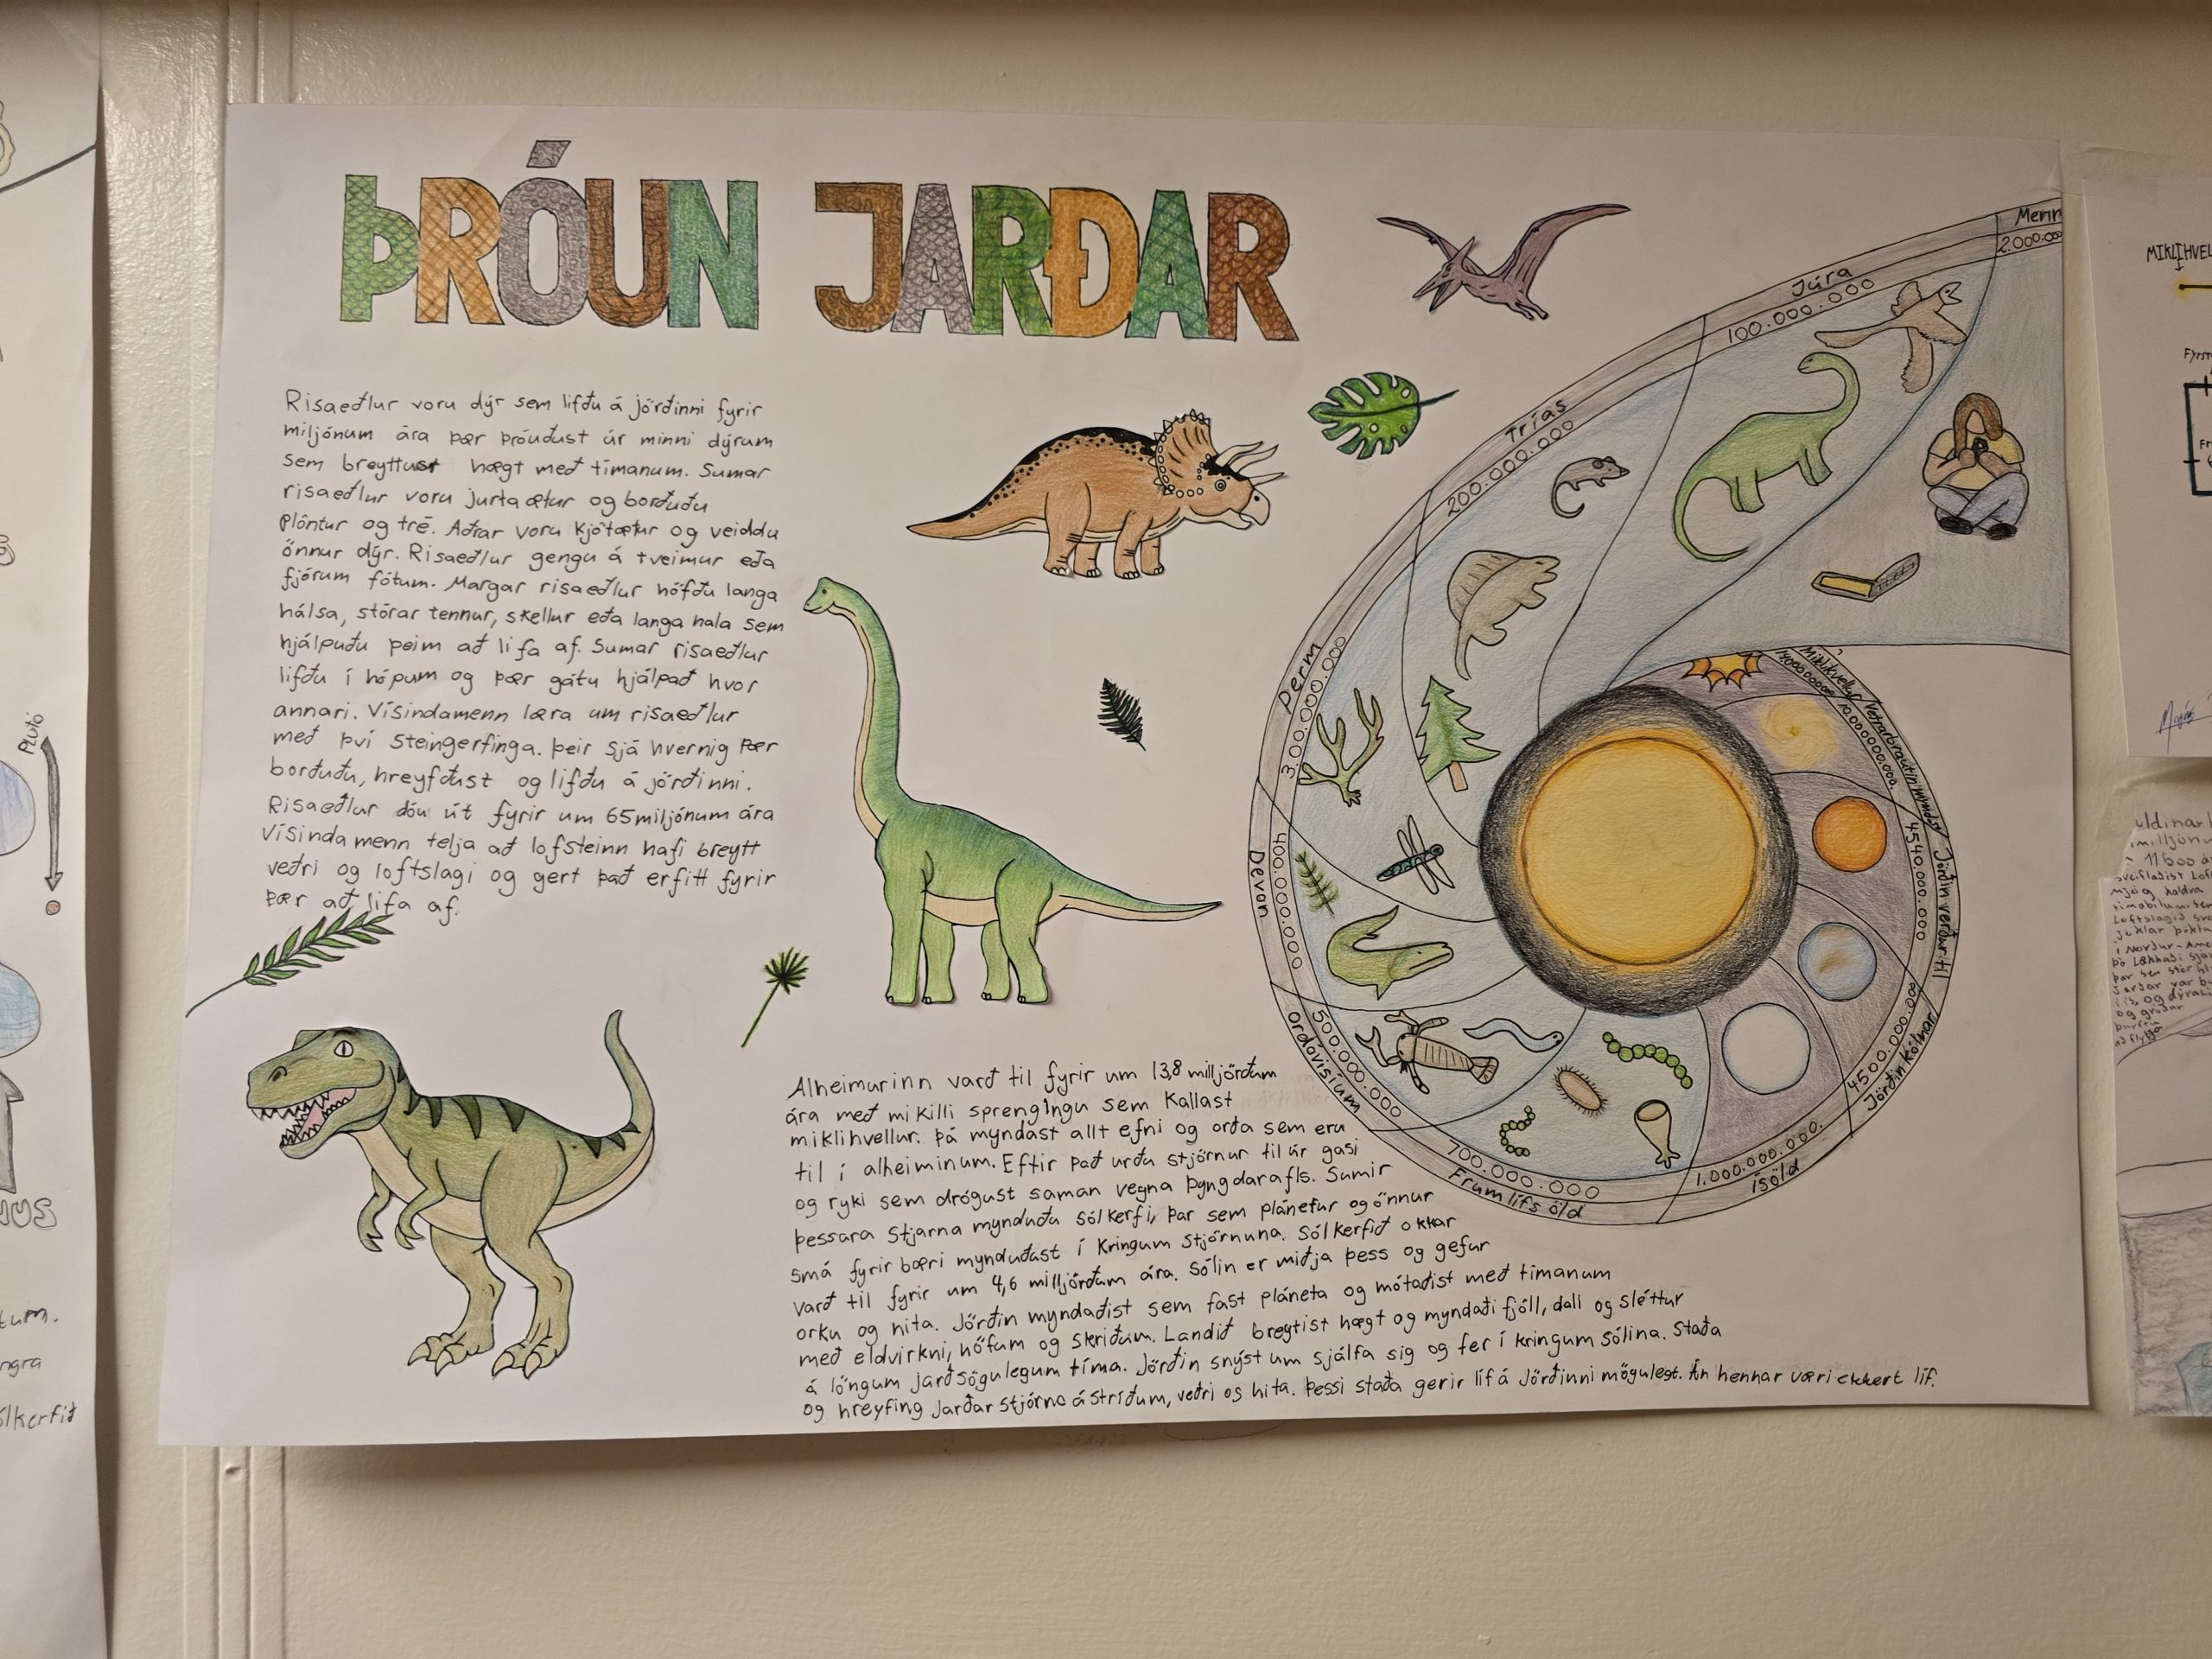 ÞRÓUN JARÐAR
Risaeðlur voru dýr sem lifðu á jörðinni fyrir
miljónum ára þær þróuðust úr minni dýrum
sem breyttust hægt með tímanum. Sumar
risaeðlur voru jurtaætur og borðuðu
plöntur og tré. Aðrar voru kjötætur og veiddu
önnur dýr. Risaeðlur gengu á tveimur eða
fjórum fótum. Margar risaeðlur höfðu langa
hálsa, stórar tennur, skellur eða langa hala sem
hjálpuðu þeim að lifa af. Sumar risaeðlur
lifðu í hópum og þær gátu hjálpað hvor
annari. Vísindamenn læra um risaeðlur
með því steingerfinga. þeir sjá hvernig þær
borðuðu, hreyfðust og lifðu á jörðinni.
Risaeðlur dóu út fyrir um 65 miljónum ára
Vísindamenn telja að lofsteinn hafi breytt
veðri og loftslagi og gert það erfitt fyrir
þær að lifa af.
Alheimurinn varð til fyrir um 13,8 milljörðum
ára með mikilli sprengingu sem kallast
miklihvellur. Þá myndast allt efni og orða sem eru
til í alheiminum. Eftir það urðu stjörnur til úr gasi
og ryki sem drógust saman vegna þyngdarafls. Sumir
þessara stjarna mynduðu sólkerfi, þar sem plánetur og önnur
smá fyrir bæri mynduðust í kringum stjörnuna. Sólkerfið okkar
varð til fyrir um 4,6 milljörðum ára. Sólin er miðja þess og gefur
orku og hita. Jörðin myndaðist sem fast pláneta og mótaðist með tímanum
með eldvirkni, höfum og skriðum. Landið breytist hægt og myndaði fjöll, dali og sléttur
á löngum jarðsögulegum tíma. Jörðin snýst um sjálfa sig og fer í kringum sólina. Staða
og hreyfing Jarðar stjórna ástríðum, veðri og hita. Þessi staða gerir líf á Jörðinni mögulegt. Án hennar væri ekkert líf.
Menn
2.000.00
Júra
100.000.000
Trías
200.000.000
Perm
300.000.000
Devon
400.000.000
Ordóvísíum
500.000.000
Frumlífsöld
700.000.000
Ísöld
1.000.000.000.
Jörðin kólnar
4500.000.000
Jörðin verður til
4540.000.000
Vetrarbrautin myndast
10.000000000.
Miklihvellur
14000000000
PLUTO
NUS
tum.
ngra
ólkerfið
MIKLIHVEL
Fyrst